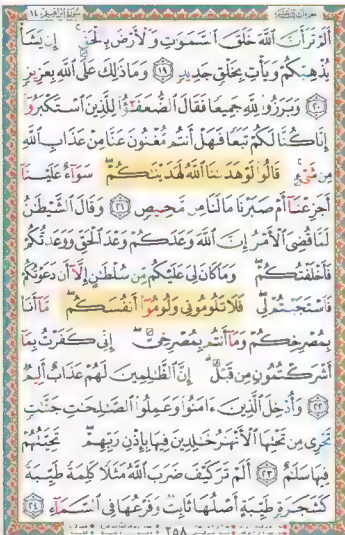 أَلَمْ تَرَ أَنَّ ٱللَّهَ خَلَقَ ٱلسَّمَٰوَٰتِ وَٱلْأَرْضَ بِٱلْحَقِّ ۚ إِن يَشَأْ
يُذْهِبْكُمْ وَيَأْتِ بِخَلْقٍ جَدِيدٍ ١٩ وَمَا ذَٰلِكَ عَلَى ٱللَّهِ بِعَزِيزٍ
٢٠ وَبَرَزُوا۟ لِلَّهِ جَمِيعًا فَقَالَ ٱلضُّعَفَٰٓؤُا۟ لِلَّذِينَ ٱسْتَكْبَرُوٓا۟
إِنَّا كُنَّا لَكُمْ تَبَعًا فَهَلْ أَنتُم مُّغْنُونَ عَنَّا مِنْ عَذَابِ ٱللَّهِ
مِن شَىْءٍ ۚ قَالُوا۟ لَوْ هَدَىٰنَا ٱللَّهُ لَهَدَيْنَٰكُمْ ۖ سَوَآءٌ عَلَيْنَآ
أَجَزِعْنَآ أَمْ صَبَرْنَا مَا لَنَا مِن مَّحِيصٍ ٢١ وَقَالَ ٱلشَّيْطَٰنُ
لَمَّا قُضِىَ ٱلْأَمْرُ إِنَّ ٱللَّهَ وَعَدَكُمْ وَعْدَ ٱلْحَقِّ وَوَعَدتُّكُمْ
فَأَخْلَفْتُكُمْ ۖ وَمَا كَانَ لِىَ عَلَيْكُم مِّن سُلْطَٰنٍ إِلَّآ أَن دَعَوْتُكُمْ
فَٱسْتَجَبْتُمْ لِى ۖ فَلَا تَلُومُونِى وَلُومُوٓا۟ أَنفُسَكُم ۖ مَّآ أَنَا۠
بِمُصْرِخِكُمْ وَمَآ أَنتُم بِمُصْرِخِىَّ ۖ إِنِّى كَفَرْتُ بِمَآ
أَشْرَكْتُمُونِ مِن قَبْلُ ۗ إِنَّ ٱلظَّٰلِمِينَ لَهُمْ عَذَابٌ أَلِيمٌ
٢٢ وَأُدْخِلَ ٱلَّذِينَ ءَامَنُوا۟ وَعَمِلُوا۟ ٱلصَّٰلِحَٰتِ جَنَّٰتٍ
تَجْرِى مِن تَحْتِهَا ٱلْأَنْهَٰرُ خَٰلِدِينَ فِيهَا بِإِذْنِ رَبِّهِمْ ۖ تَحِيَّتُهُمْ
فِيهَا سَلَٰمٌ ٢٣ أَلَمْ تَرَ كَيْفَ ضَرَبَ ٱللَّهُ مَثَلًا كَلِمَةً طَيِّبَةً
كَشَجَرَةٍ طَيِّبَةٍ أَصْلُهَا ثَابِتٌ وَفَرْعُهَا فِى ٱلسَّمَآءِ ٢٤
٢٥٨